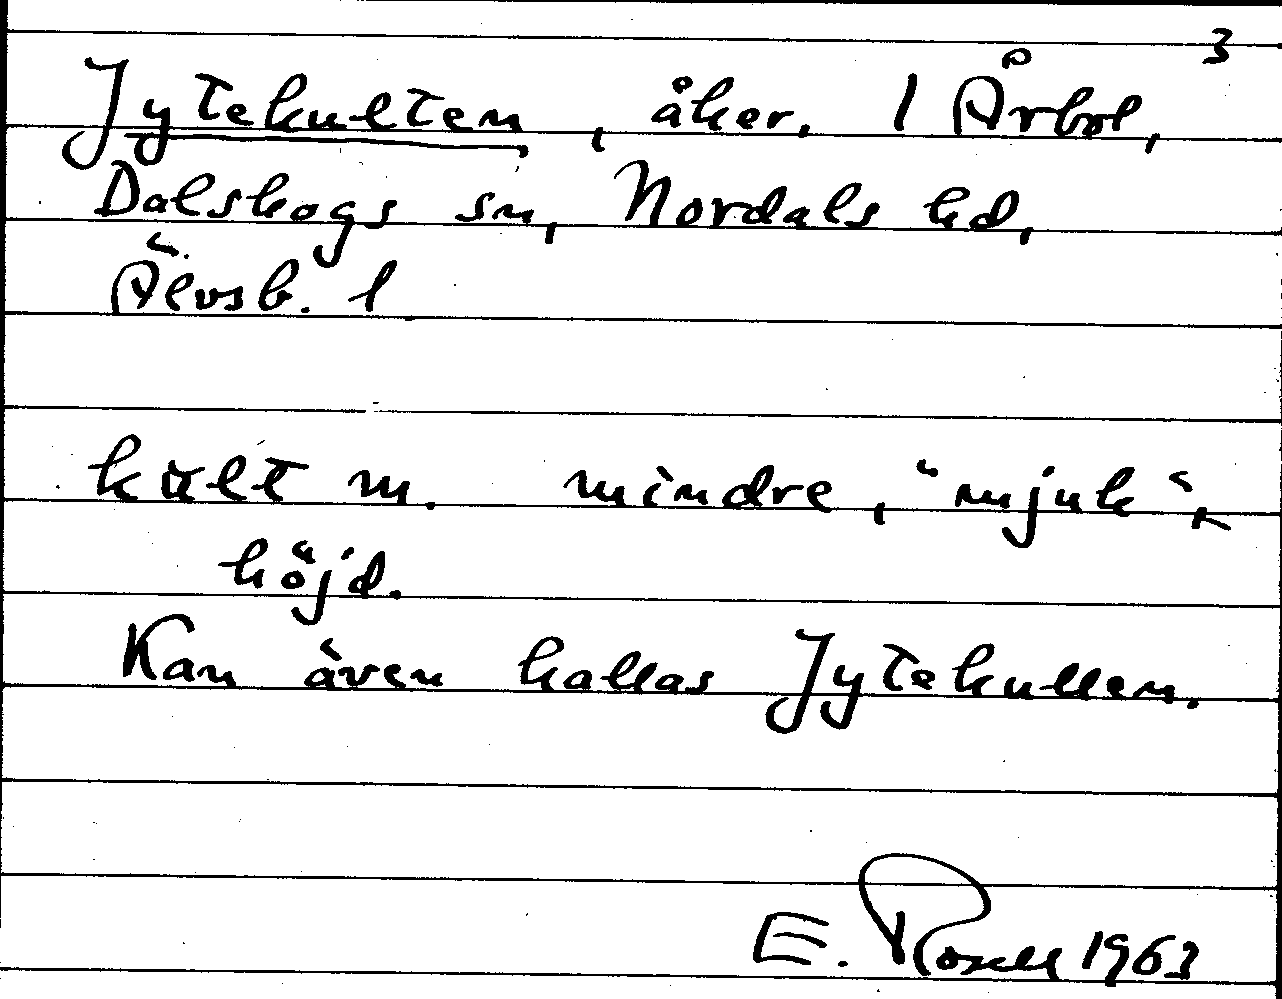 3
Jytekulten, åker. 1 Årbol,
Dalskogs sn, Nordals hd,
Älvsb. l
kult m. mindre, "mjuk"
höjd.
Kan även kallas Jytekullen.
E. Rosell 1963